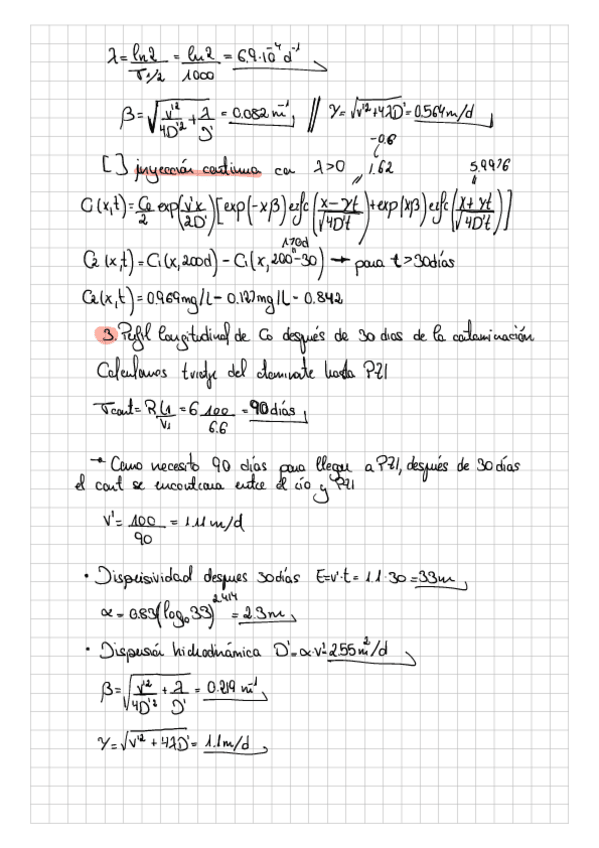 λ = ln2/T1/2 = ln2/1000 = 6.9·10⁻⁴ d⁻¹
β = √(v'²/4D'² + λ/D') = 0.082 m⁻¹ // γ = √(v'²+4λD') = 0.564 m/d
[ ] inyección continua con λ>0
-0.6
1.62
5.9976
C1(x,t) = C0/2 exp(v'x/2D')[exp(-xβ) erfc(x-γt/√4D't) + exp(xβ) erfc(x+γt/√4D't)]
170d
C2(x,t) = C1(x,200d) - C1(x,200-30) → para t > 30días
C2(x,t) = 0.969mg/L - 0.127mg/L = 0.842
3. Perfil longitudinal de C0 después de 30 dias de la contaminación
Calculamos tviaje del contaminante hasta PZ1
Tcont = R L1/V1 = 6 100/6.6 = 90 días
→ Como necesito 90 días para llegar a PZ1, después de 30 días
el cont se encontrara entre el río y PZ1
V' = 100/90 = 1.11 m/d
• Dispersividad despues 30días E=v'·t = 1.1·30 = 33m
α = 0.83(log₁₀33)^2.414 = 2.3m
• Dispersión hidrodinámica D' = α·v' = 2.55 m²/d
β = √(v'²/4D'² + λ/D') = 0.219 m⁻¹
γ = √(v'² + 4λD') = 1.1m/d